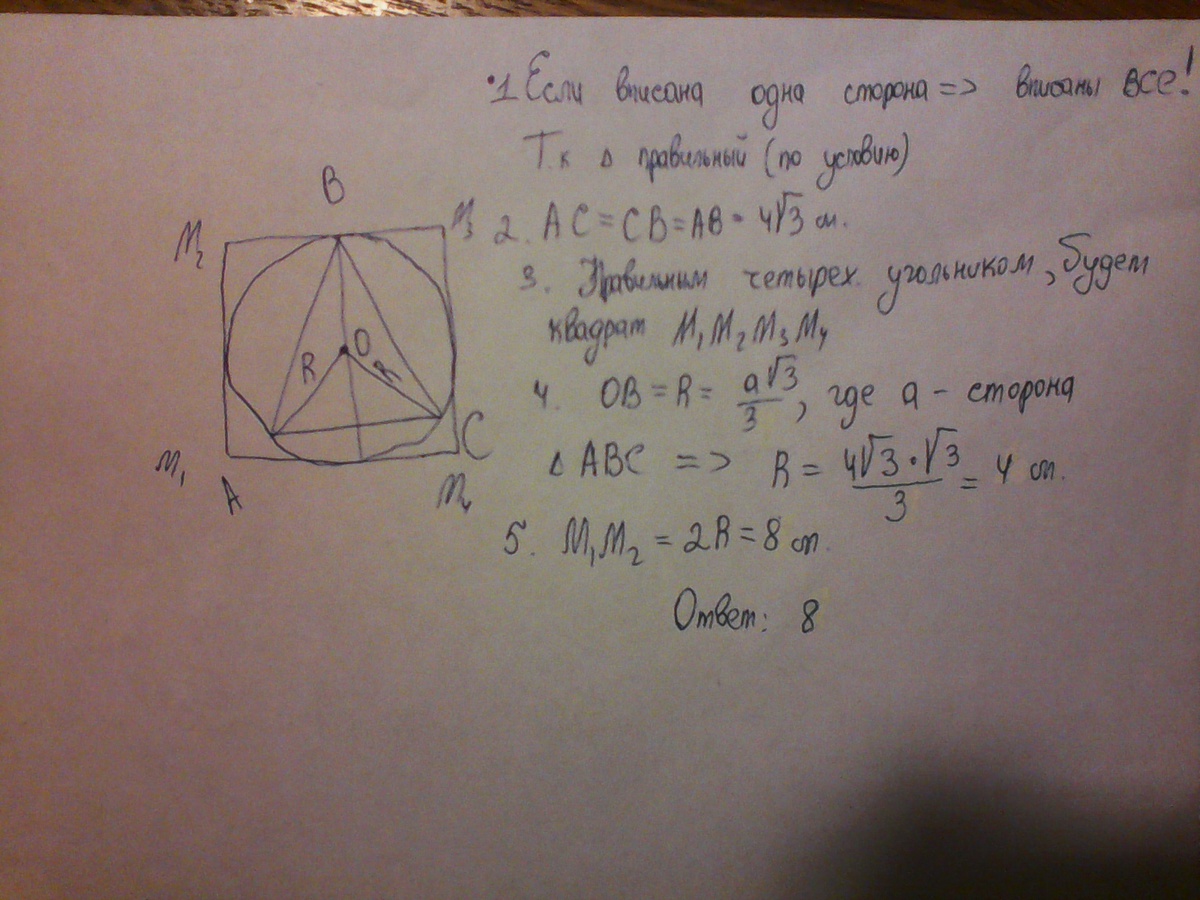 1 Если вписана одна сторона => вписаны ВСЕ!
Т.к Δ правильный (по условию)
B
M₂
M₃
2. AC = CB = AB = 4√3 см.
3. Правильным четырех угольником, будет
квадрат M₁M₂M₃M₄
O
R
R
4. OB = R = a√3/3, где a - сторона
Δ ABC => R = 4√3·√3/3 = 4 см.
C
M₁
A
M₄
5. M₁M₂ = 2R = 8 см.
Ответ: 8